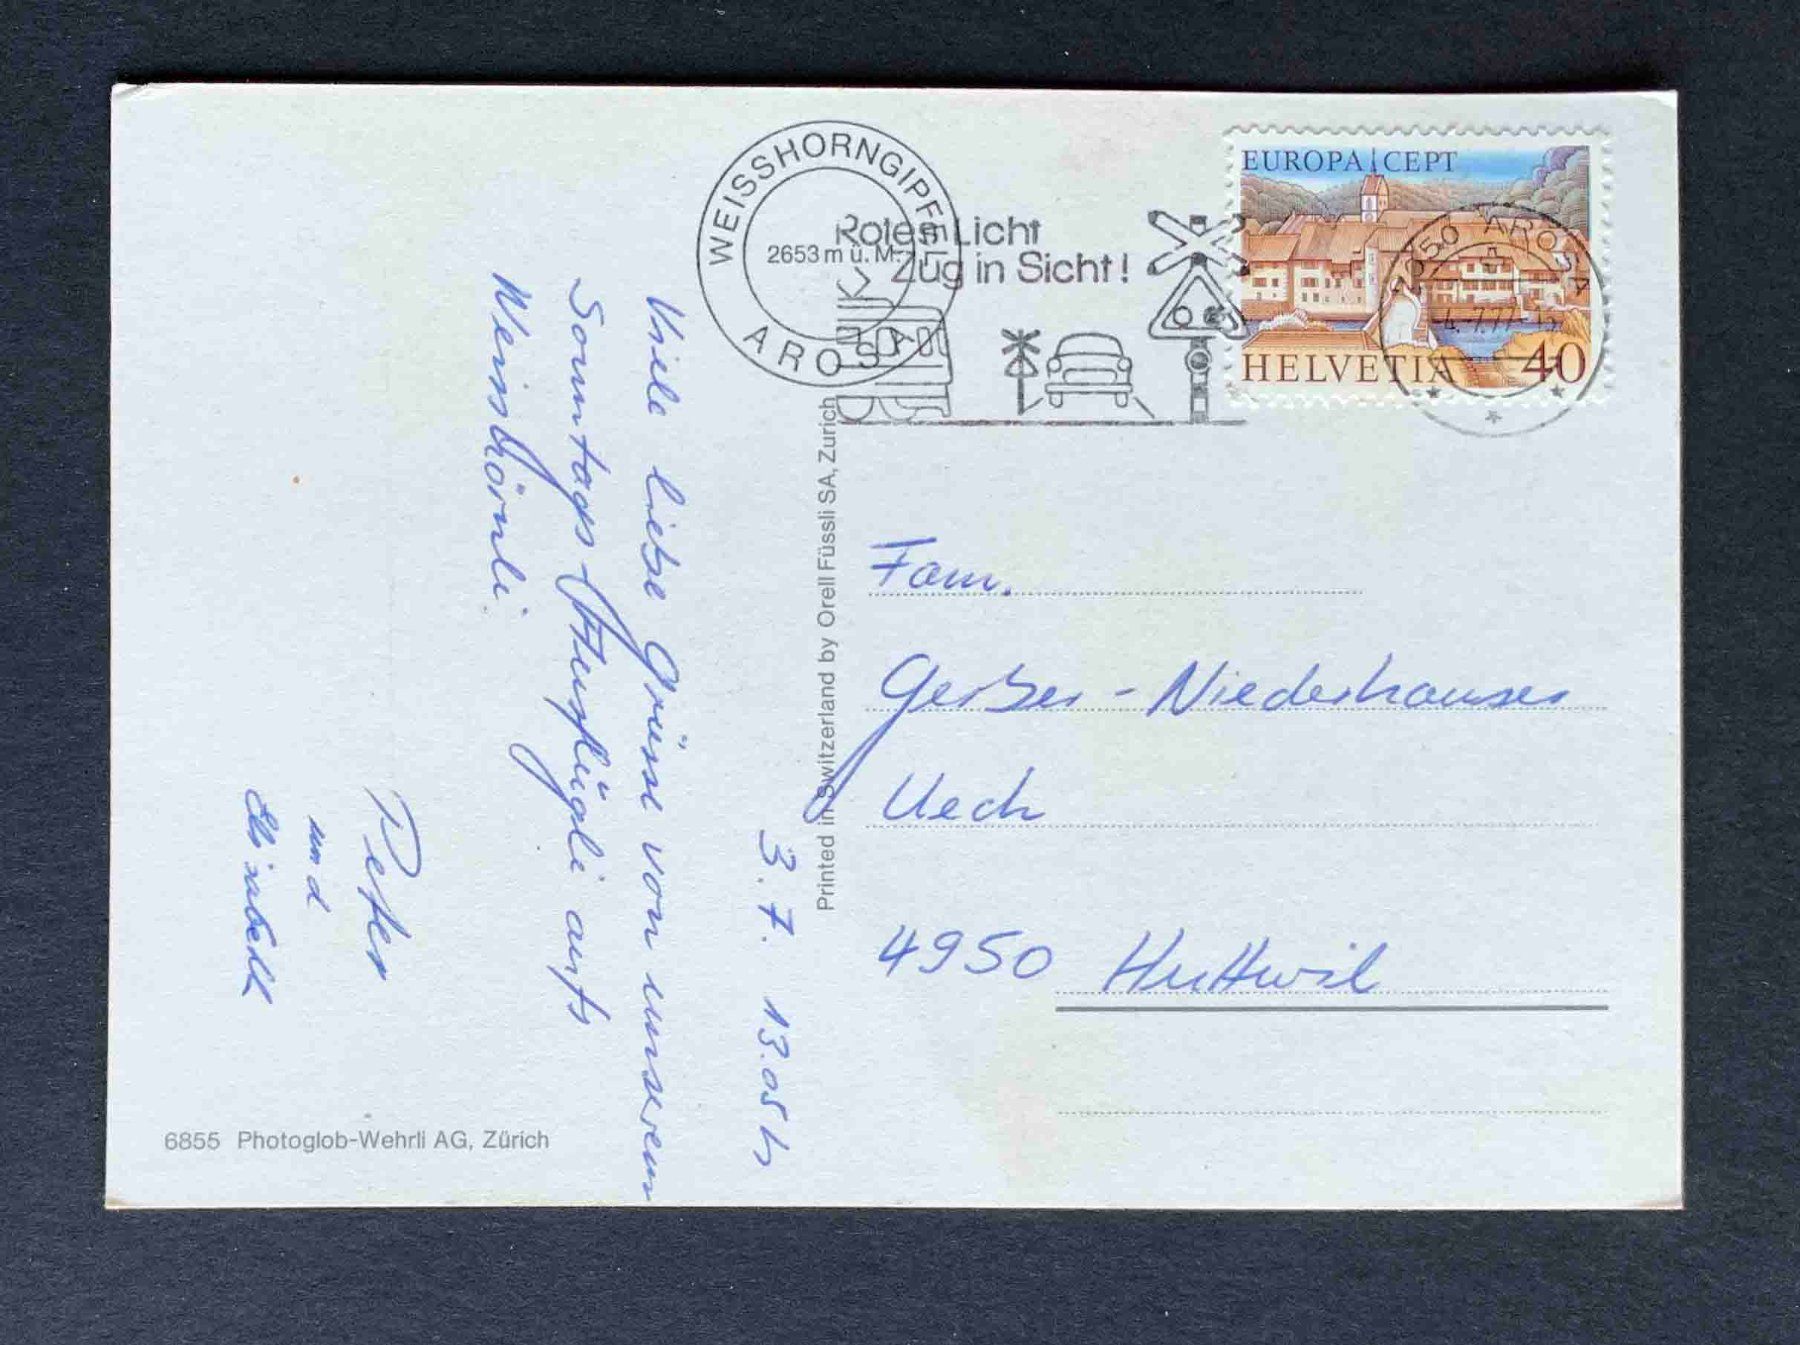 WEISSHORNGIPFEL
2653 m ü. M.
AROSA
Rotes Licht
Zug in Sicht!
EUROPA CEPT
HELVETIA 40
7050 AROSA
4.7.77
3.7. 13.05 h
Viele liebe Grüsse von unserem
Sonntags-Ausflügli aufs
Weisshörnli.
Peter
und
Elisabeth
Printed in Switzerland by Orell Füssli SA, Zurich
Fam.
Gerber-Niederhauser
Uech
4950 Huttwil
6855 Photoglob-Wehrli AG, Zürich